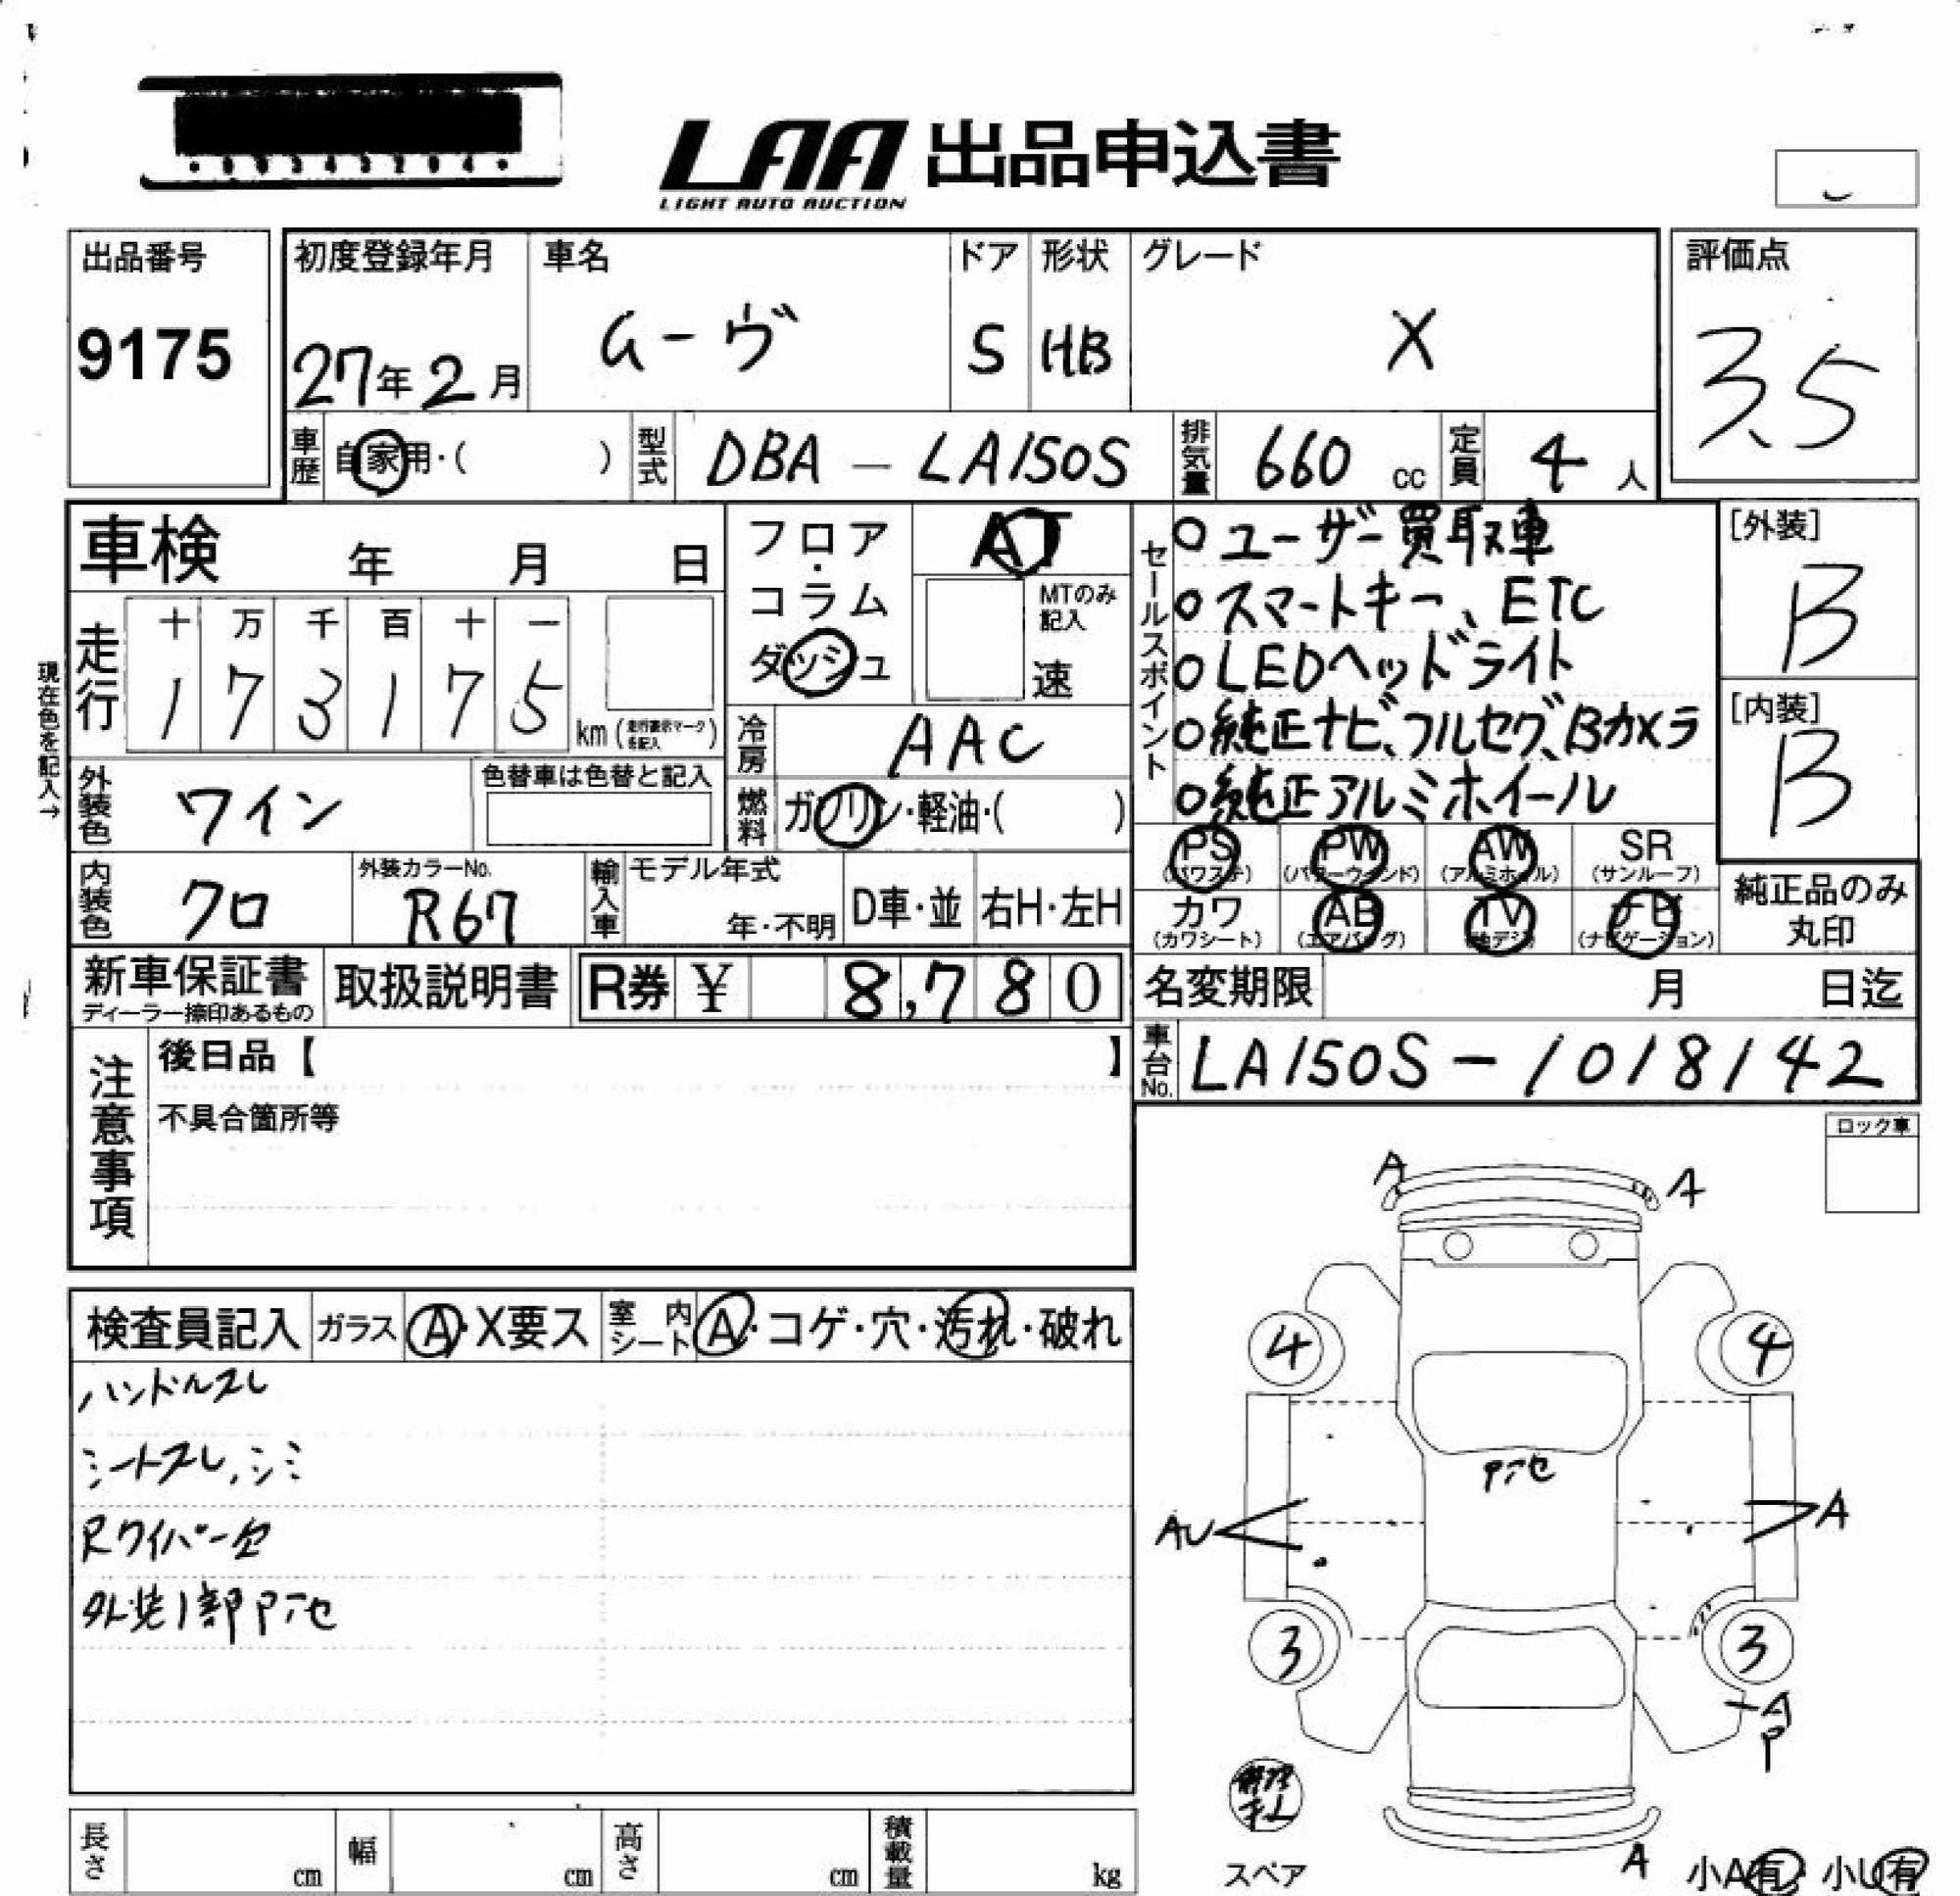 LAA 出品申込書
LIGHT AUTO AUCTION
出品番号
9175
初度登録年月
27年2月
車名
ムーヴ
ドア
5
形状
HB
グレード
X
評価点
3.5
車歴
自家用・( )
型式
DBA - LA150S
排気量
660 cc
定員
4 人
車検 年 月 日
フロア・
コラム
ダッシュ
AT
MTのみ
記入
速
現在色を記入→
走行
十 万 千 百 十 一
1 7 3 1 7 5
km (走行表示マークを記入)
冷房
AAC
外装色
ワイン
色替車は色替と記入
燃料
ガソリン・軽油・( )
内装色
クロ
外装カラーNo.
R67
輸入車
モデル年式
年・不明
D車・並
右H・左H
セールスポイント
○ユーザー買取車
○スマートキー、ETC
○LEDヘッドライト
○純正ナビ、フルセグ、Bカメラ
○純正アルミホイール
[外装]
B
[内装]
B
PS PW AW SR
(パワステ) (パワーウインド) (アルミホイル) (サンルーフ)
カワ AB TV ナビ
(カワシート) (エアバッグ) (地デジ) (ナビゲーション)
純正品のみ
丸印
新車保証書
ディーラー捺印あるもの
取扱説明書
R券 ¥ 8,780
名変期限 月 日迄
車台No.
LA150S-1018142
注意事項
後日品【 】
不具合箇所等
ロック車
検査員記入
ガラス
A・X要ス
室内
シート
A・コゲ・穴・汚れ・破れ
ハンドルスレ
シートスレ、シミ
Rワイパー欠
外装1部Pアセ
A
A
4
4
Pアセ
AU
A
3
3
A
P
A
スペア
小A有・小U有
長さ cm
幅 cm
高さ cm
積載量 kg